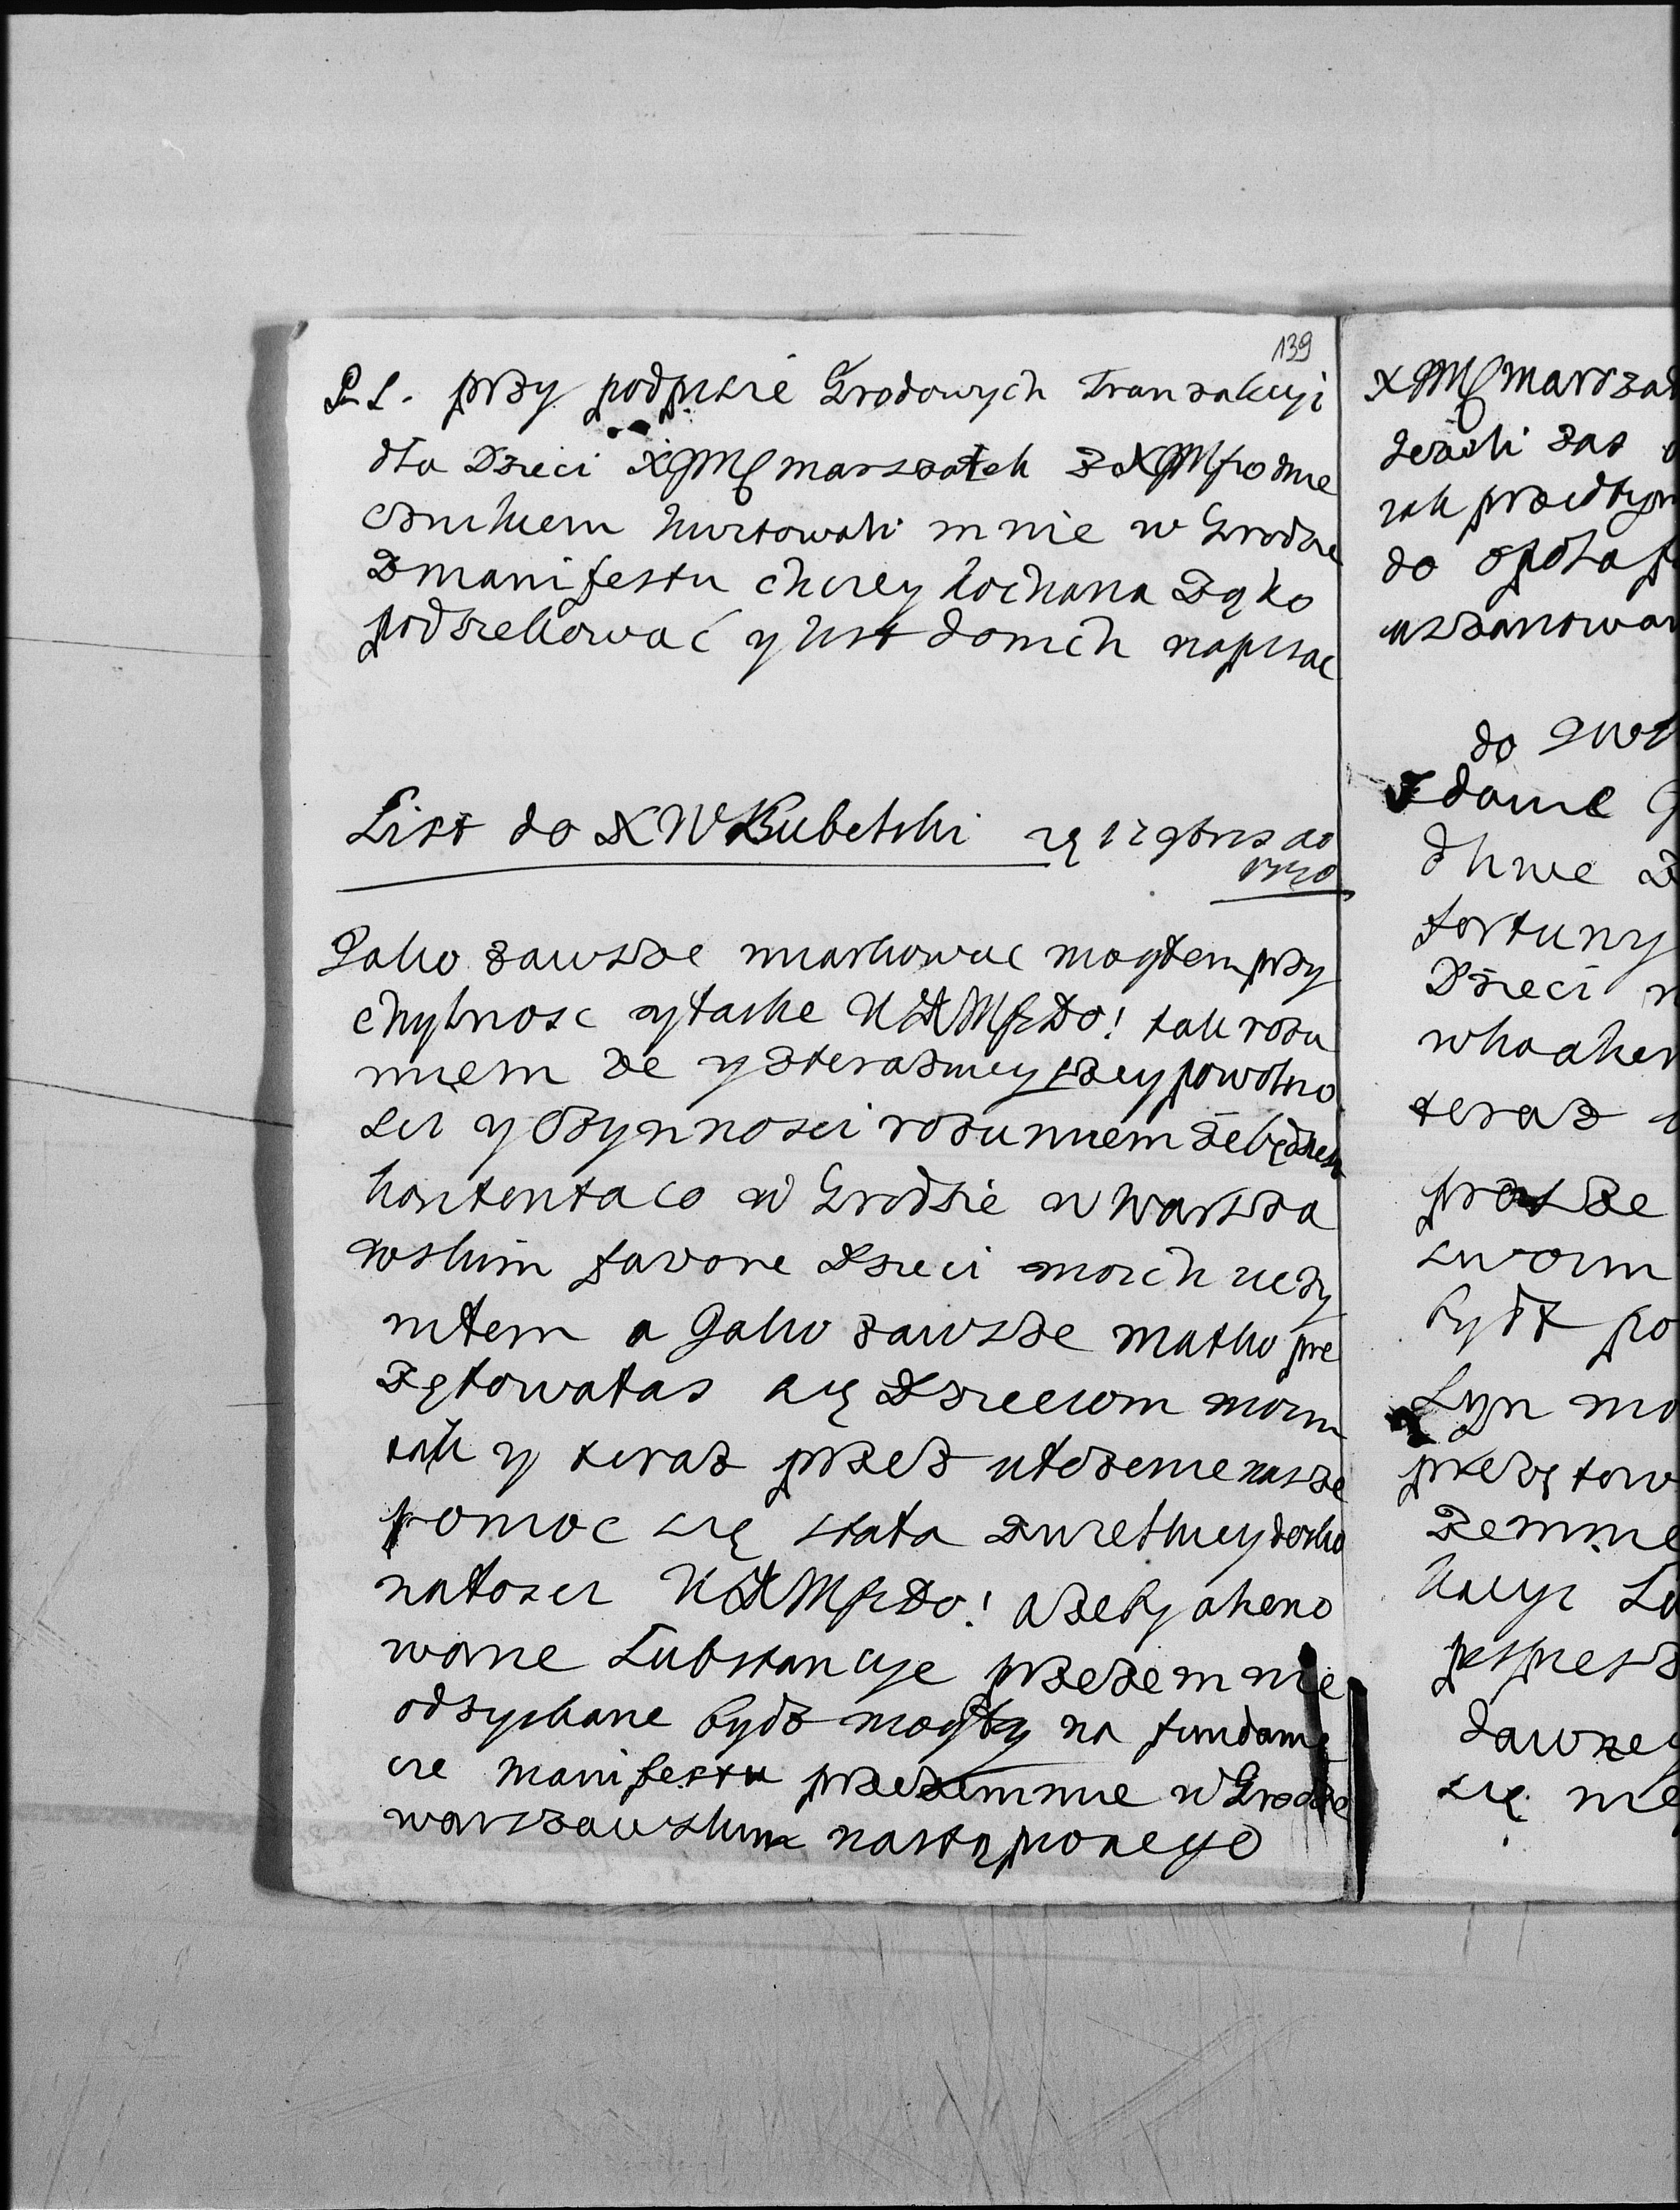 139
P.S. przy podpisie Grodowych Tranzakcyi
dla Dzieci XJMC marszałek z XJM podne
czuikiem kurtowali mnie w Grodzie
Z manifestu chciey kochana Zęko
podziekować y list do nich napisac
List do XW Kubelski 12 9bris ao
Jako zawsze miarkowac mogłem przy
chylnosc y łaske WXMPDo! tak rozu
miem ze y z terazniey szey powolno
sci y czynnosci rozumiem że będziesz
kontenta co w Grodzie w Warsza
wskim favore Dzieci moich uczy
niłem a Jako zawsze matko pre
zętowałas się Dzieciom moim
tak y teraz przez ułożenie nasze
pomoc się stała z wielkiey dosko
nałosci WXMPDo! azeby akcno
wane Substancye przezemnie
odzyskane bydz mogły na fundamę
cie manifestu przezemnie w Grodzie
warszawskim nastąpionego
XJMC marszał
Jeżeli zas
jak przedtym
do
uszanowan
do
Zdanie
fortuny
Dzieci
teraz
prosze
swoim
bydz po
Syn mo
prezętow
Zemnie
kacyi
pospiesz
dawney
się nie